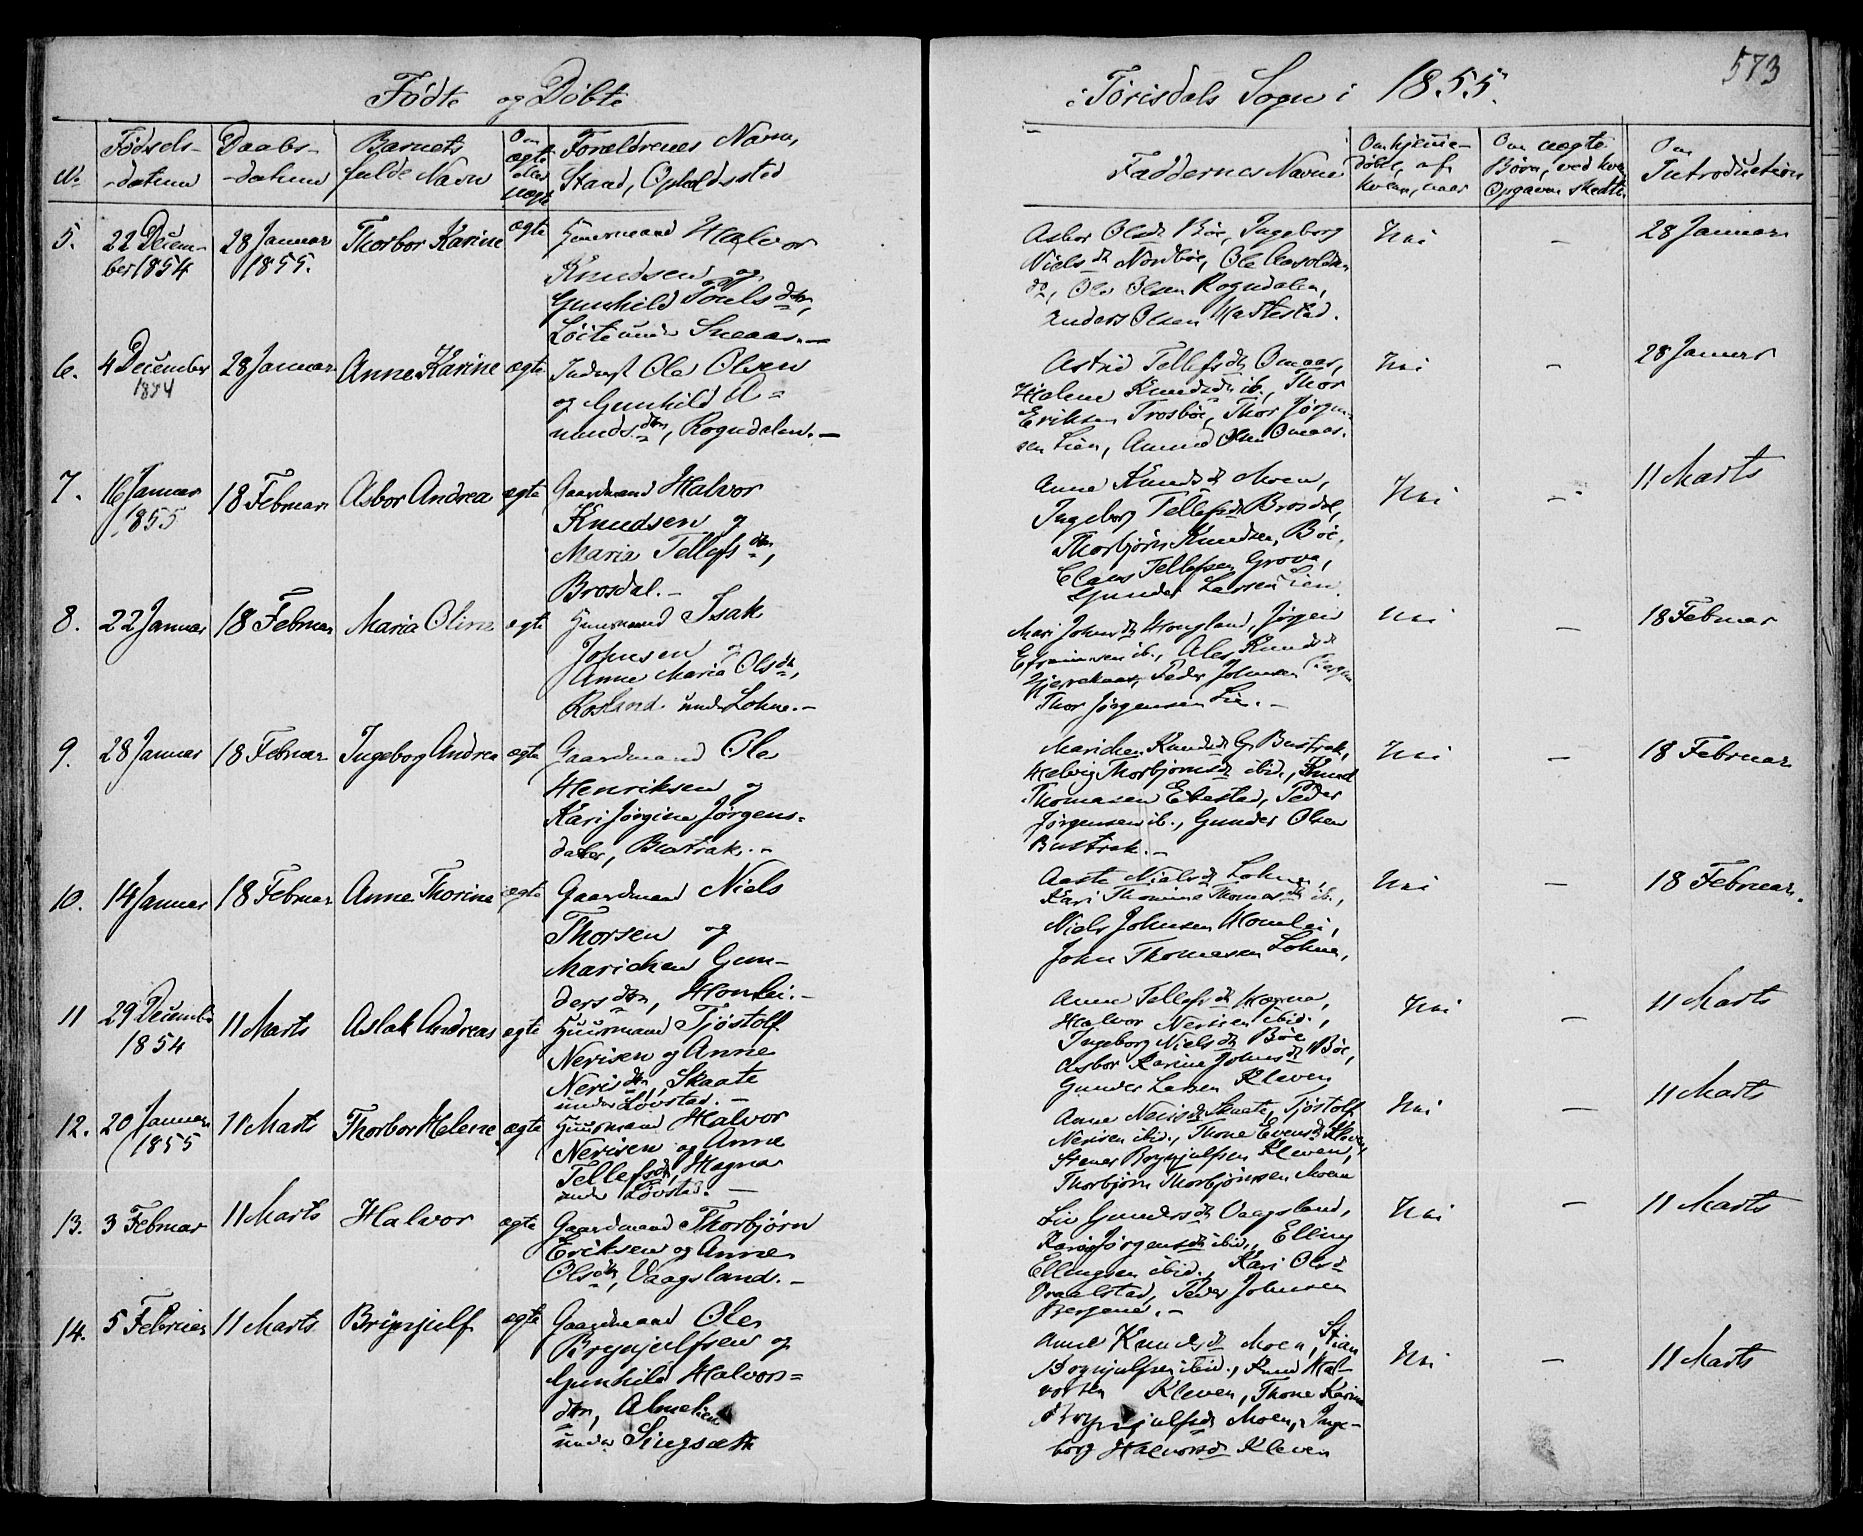 573
Fødte og Døbte
i Tørisdals Sogn i 1855.
No
Fødsels-
-datum
Daabs-
-datum
Barnets
fulde Navn
Om
ægte
eller
uægte
Forældrenes Navn,
Stand, Opholdssted
Faddernes Navne
Om hjemme-
døbte, af
hvem, naar
Om uægte
Børn, ved hvem
Opgaven skedte
Om
Introduction
5.
22 Decem-
ber 1854
28 Januar
1855.
Thorbor Karine
ægte
Huusmand Halvor
Knudsen og
Gunhild
Løite under Sneaas.-
Asbor Olsdr Bøe, Ingeborg
Nielsdr Nordbøe, Ole
Ole Olsen Rogndalen,
Anders Olsen
Nei
-
28 Januar
6.
4 December
1854
28 Januar
Anne Karine
ægte
Inderst Ole Olsen
og Gunhild A-
mundsdtr, Rogndalen.-
Astrid Tellefsdr Omaas,
Halene Knudsdr ib, Thor
Eriksen Trosbøe, Thor Jørgen-
sen Lien, Amund Olsen Omaas.
Nei
-
28 Januar
7.
16 Januar
1855
18 Februar
Asbor Andrea
ægte
Gaardmand Halvor
Knudsen og
Maria Tellefsdtr,
Brosdal.-
Anne Knudsdr Moen,
Ingeborg Tellefsdr Brosdal,
Thorbjørn Knudsen Bøe,
Claus Tellefsen Grova,
Gunder Larsen Lien.
Nei
-
11 Marts
8.
22 Januar
18 Februar
Maria Oline
ægte
Huusmand Isak
Johnsen og
Anne Maria Olsdtr,
Rosland under Lohne.-
Mari Johnsdr Hougland, Jørgen
Efraimsen ib., Knudsdr
Peder Johnsen
Thor Jørgensen Lie.-
Nei
-
18 Februar
9.
28 Januar
18 Februar
Ingeborg Andrea
ægte
Gaardmand Ole
Henriksen og
Kari Jørgine Jørgens-
datter, Bustrak.-
Marichen Knudsdr Bustrak,
Helvig Thorbjørnsdr ibid., Knud
Thomasen Eikestad, Peder
Jørgensen ib., Gunder Olsen
Bustrak.-
Nei
-
18 Februar
10.
14 Januar
18 Februar
Anne Thorine
ægte
Gaardmand Niels
Thorsen og
Marichen Gun-
dersdtr, Homlei.-
Aaste Nielsdr Lohne,
Kari Thomine Thomasdr ib.,
Niels Johnsen Homlei,
John Thomasen Lohne,
Nei
-
18 Februar.
11
29 December
1854
11 Marts
Aslak Andreas
ægte
Huusmand Tjøstolf
Nerisen og Anne
Nerisdtr, Skaate
under Løvstad.-
Anne Tellefsdr Hagna,
Halvor Nerisen ibid.,
Ingeborg Nielsdr Bøe
Asbor Karine Johnsdr Bøe,
Gunder Larsen Kleven
Nei
-
11 Marts
12.
20 Januar
1855
11 Marts
Thorbor Helene
ægte
Huusmand Halvor
Nerisen og Anne
Tellefsdr, Hagna
under Løvstad.-
Anne Nerisdr Skaate, Tjøstolf
Nerisen ibid., Thone Evensdr Kleven,
Stener Brynjulfsen Kleven,
Thorbjørn Thorbjørnsen Moen
Nei
-
11 Marts
13.
3 Februar
11 Marts
Halvor
ægte
Gaardmand Thorbjørn
Eriksen og Anne
Olsdtr, Vaagsland.-
Liv Gundersdr Vaagsland,
Karen Jørgensdr ibid., Elling
Ellingsen ibid., Kari Olsdr
Peder Johnsen
Bergene.-
Nei
-
11 Marts
14.
5 Februar
11 Marts
Brynjulf
ægte
Gaardmand Ole
Brynjulfsen og
Gunhild Halvors-
dtr,
under Singsæth
Anne Knudsdr Moen, Stian
Brynjulfsen ibid., Knud Hal-
vorsen Kleven, Thone Karine
Brynjulfsdr Moen, Inge-
borg Halvorsdr Kleven
Nei
-
11 Marts